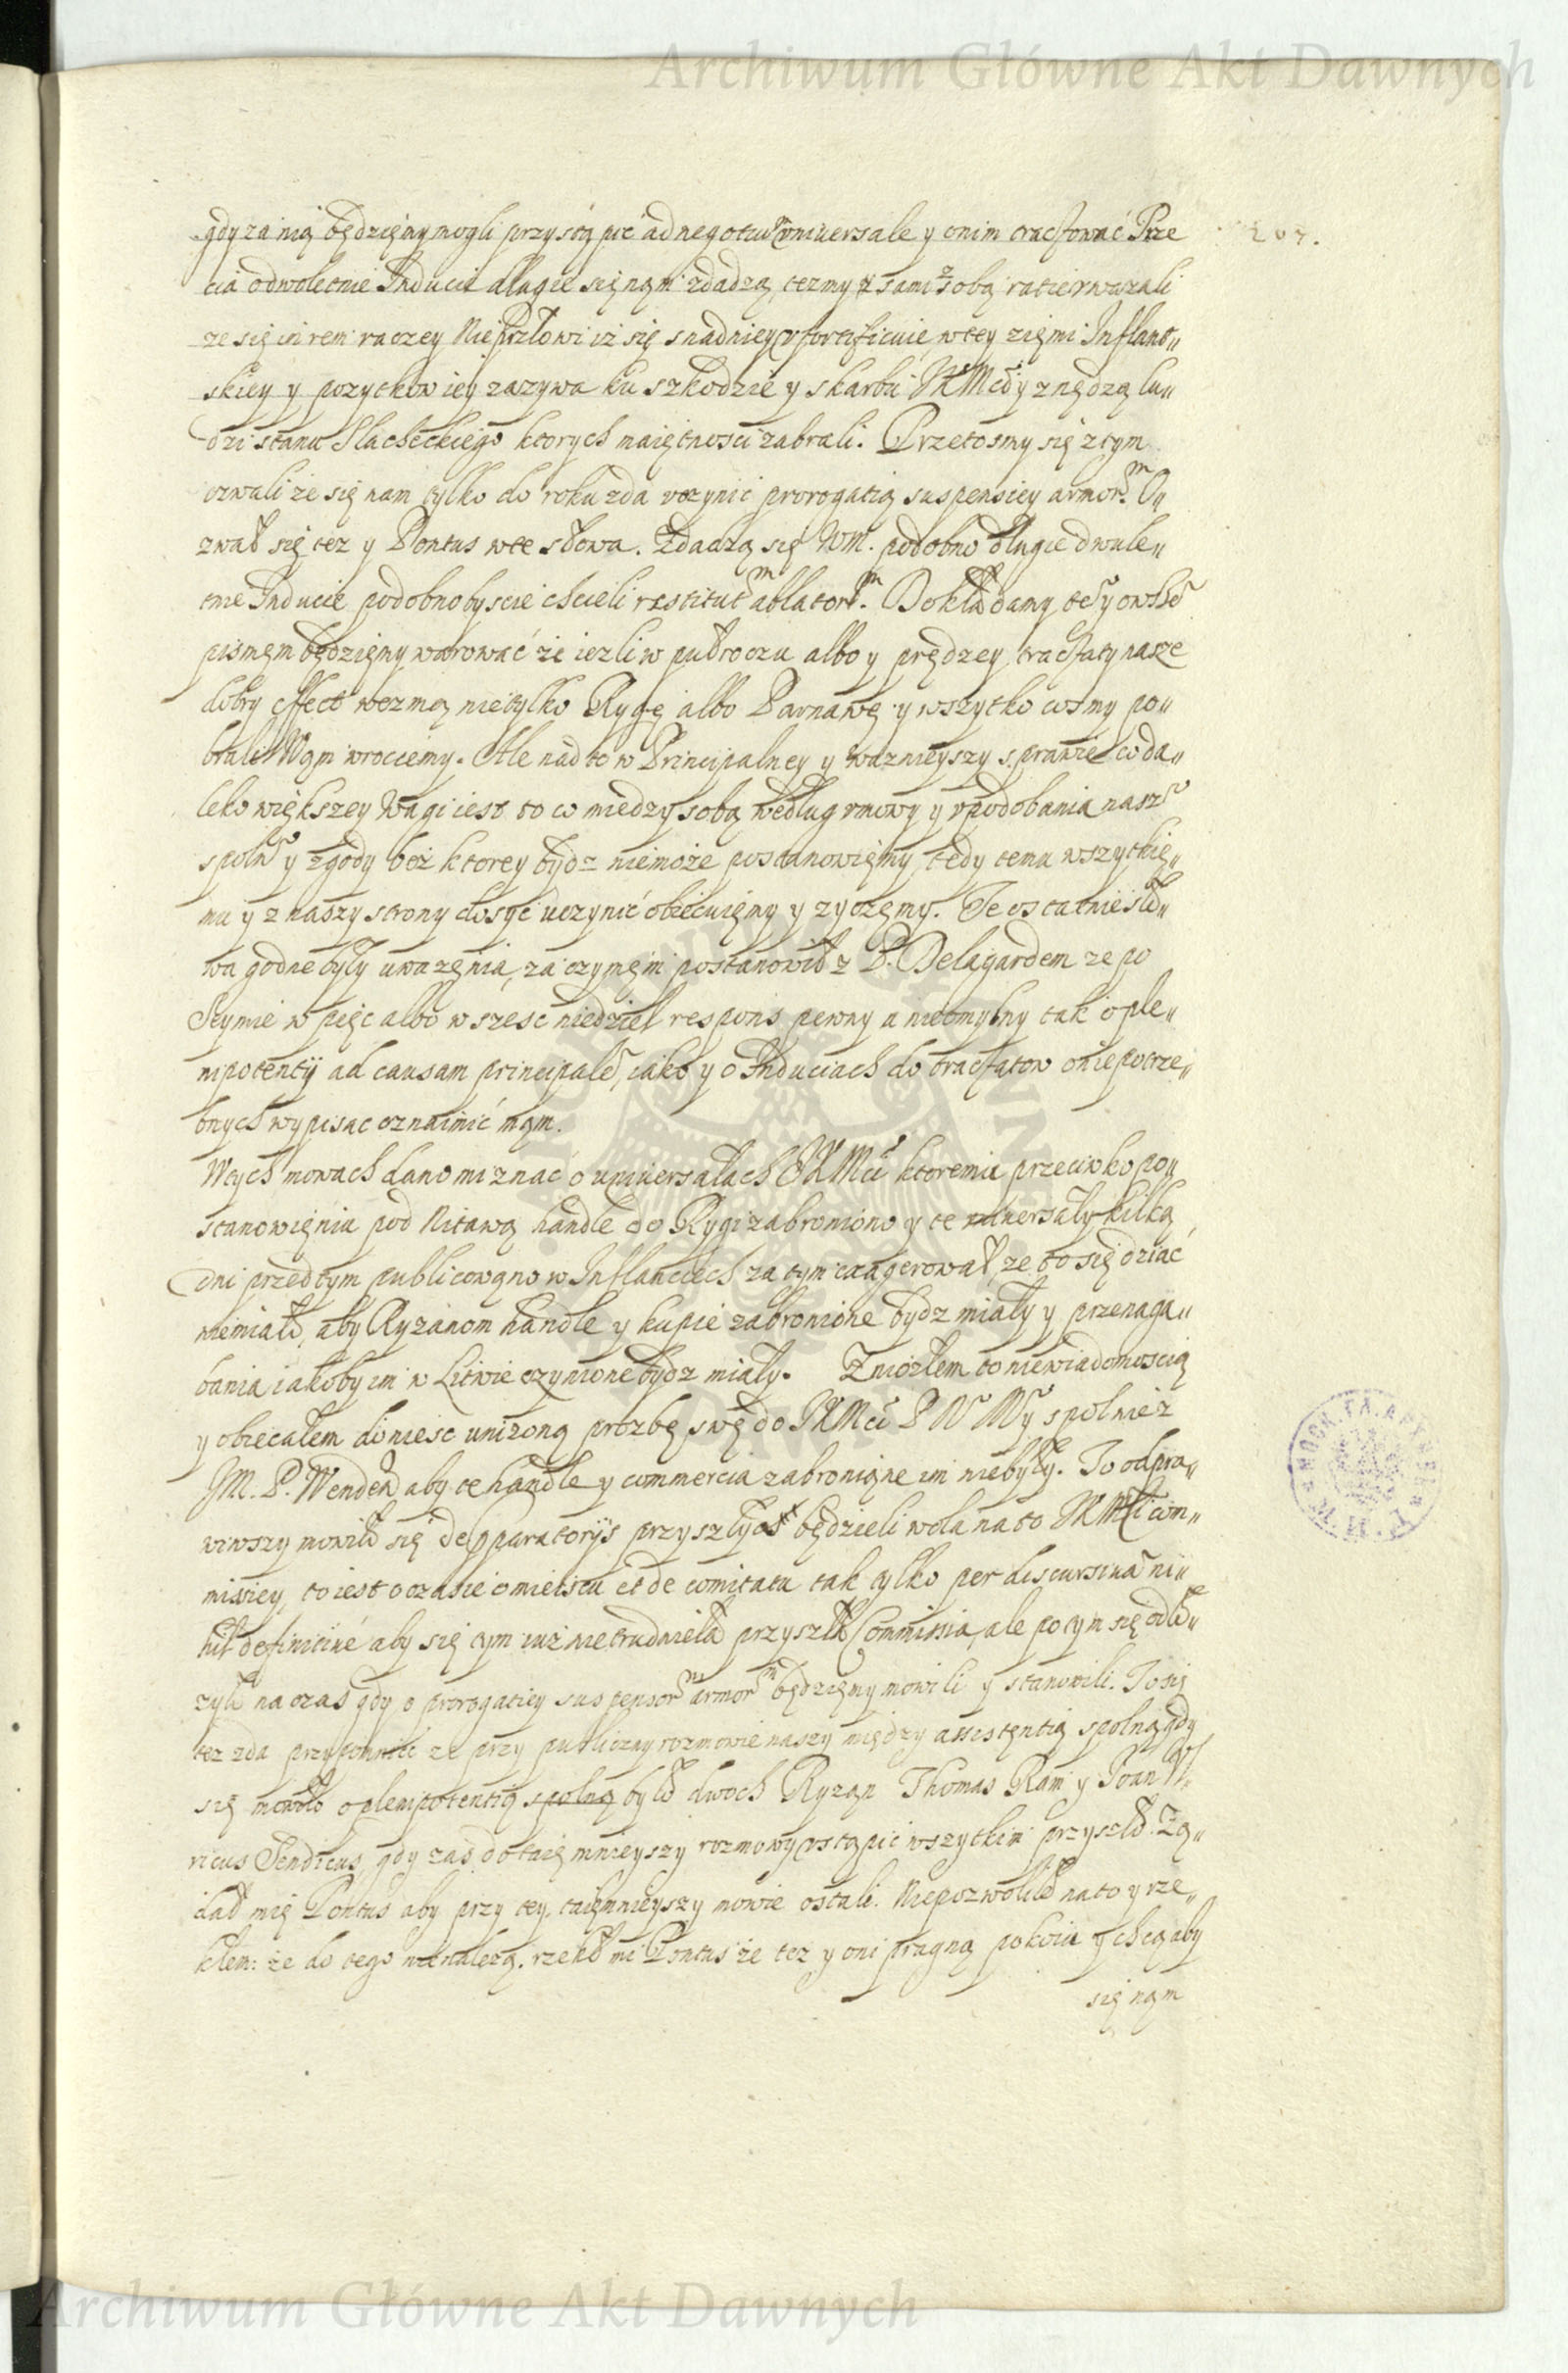 Archiwum Główne Akt Dawnych
207.
gdy za nią będziemy mogli przystąpić ad negotium universale y onim tractować Prze
cia odwoletnie Inducie dlugie się nąm zdadzą, tezmy z sami z sobą ratie uwazali
ze się in rem raczey Nieprzłowi iz się snadniey ufortificuie, wtey ziemi Inflant„
skiey y pozytkow iey zazywa ku szkodzie y skarbu JKMci y znędzą lu„
dzi stanu Slacheckiego ktorych maiętnosci zabrali. Przetosmy się ztym
ozwali ze się nam tylko do roku zda uczynić prorogatią suspensiey armorm. O„
zwał się tez y Pontus wte słowa. Zdadzą się WM. podobno dlugie dwule„
tnie Inducie podobnobyscie chcieli restitutm ablatorm. Dokładamy tey
pismem będziemy warować że iezli w pułroczu albo y prędzey tractaty nasze
dobry effect wezmą nietylko Rygę albo Parnawę y wszytko cosmy po„
brali Wąm wrociemy. Ale nad to w Principalney y waznieyszy sprawie co da„
leko większey wagi iest to co miedzy sobą według umowy y upodobania nasz°
spoln° y zgody bez ktorey bydz niemoże postanowiemy, tedy temu wszytkie„
mu y z naszy strony dosyć uczynić obiecuiemy y zyczemy. Te ostatnie sło„
wa godne były uwazenia, zaczymem postanowił z P. Delagardem ze po
Seymie w pięc albo w szesc niedziel respons pewny a nieomylny tak o ple„
nipotentij ad causam principalē, iako y o Induciach do tractatow onie potrze„
bnych wypisac oznaimić mąm.
Wtych mowach dano mi znać o uniuersałach JKMci ktoremia przeciwko po„
stanowieniu pod Nitawą handle do Rygi zabroniono y te uniuersały kilką
dni przedtym publicowąno w Inflanciech za tym exagerował, ze to się dziać
niemiało, aby Ryzanom handle y kupie zabronione bydz miały y przenaga„
bania iakoby im w Litwie czynione bydz miały. Zniozłem to niewiadomoscią
y obiecałem doniesc unizoną prozbę swę do JKMci P N M y spolnie z
JM. P. Wenden aby te handle y commercia zabronione im niebyły. To odpra„
wiwszy mowiło się de pparatorijs przyszłych będzieli wola na to JKMci com„
missiey, to iest o czasie o mieiscu et de comitatu tak tylko per discursum ni„
hil definitiue aby się tym iuż nie trudniła przyszła Commissia, ale potym się odło„
zyło na czas gdy o prorogatiey suspensorm armorm będziemy mowili y stanowili. To się
tez zda przypomniec ze przy publiczny rozmowie naszy między assistentią spolną gdy
się mowiło o plenipotentią spolną było dwoch Ryzan Thomas Ram y Joan Vl„
ricus Sendicus, gdy zas do taiemnieyszy rozmowy ustąpic wszytkim przyszło. Zą„
dał mię Pontus aby przy tey taiemnieyszy mowie ostali. Niepozwoliłem na to y rze„
kłem: że do tego nienależą, rzekł mi Pontus że tez y oni pragną pokoiu y chcą aby
się nąm
Archiwum Główne Akt Dawnych